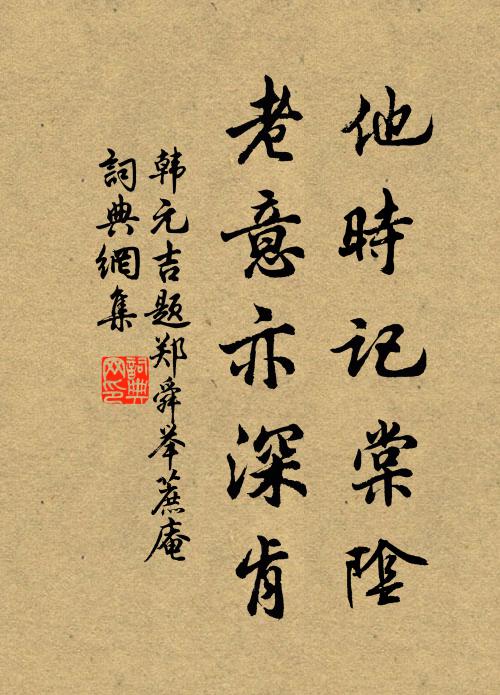 他時記棠陰
老意亦深肯
韩元吉题郑舜举蔗庵
詞典網集
詞典網印